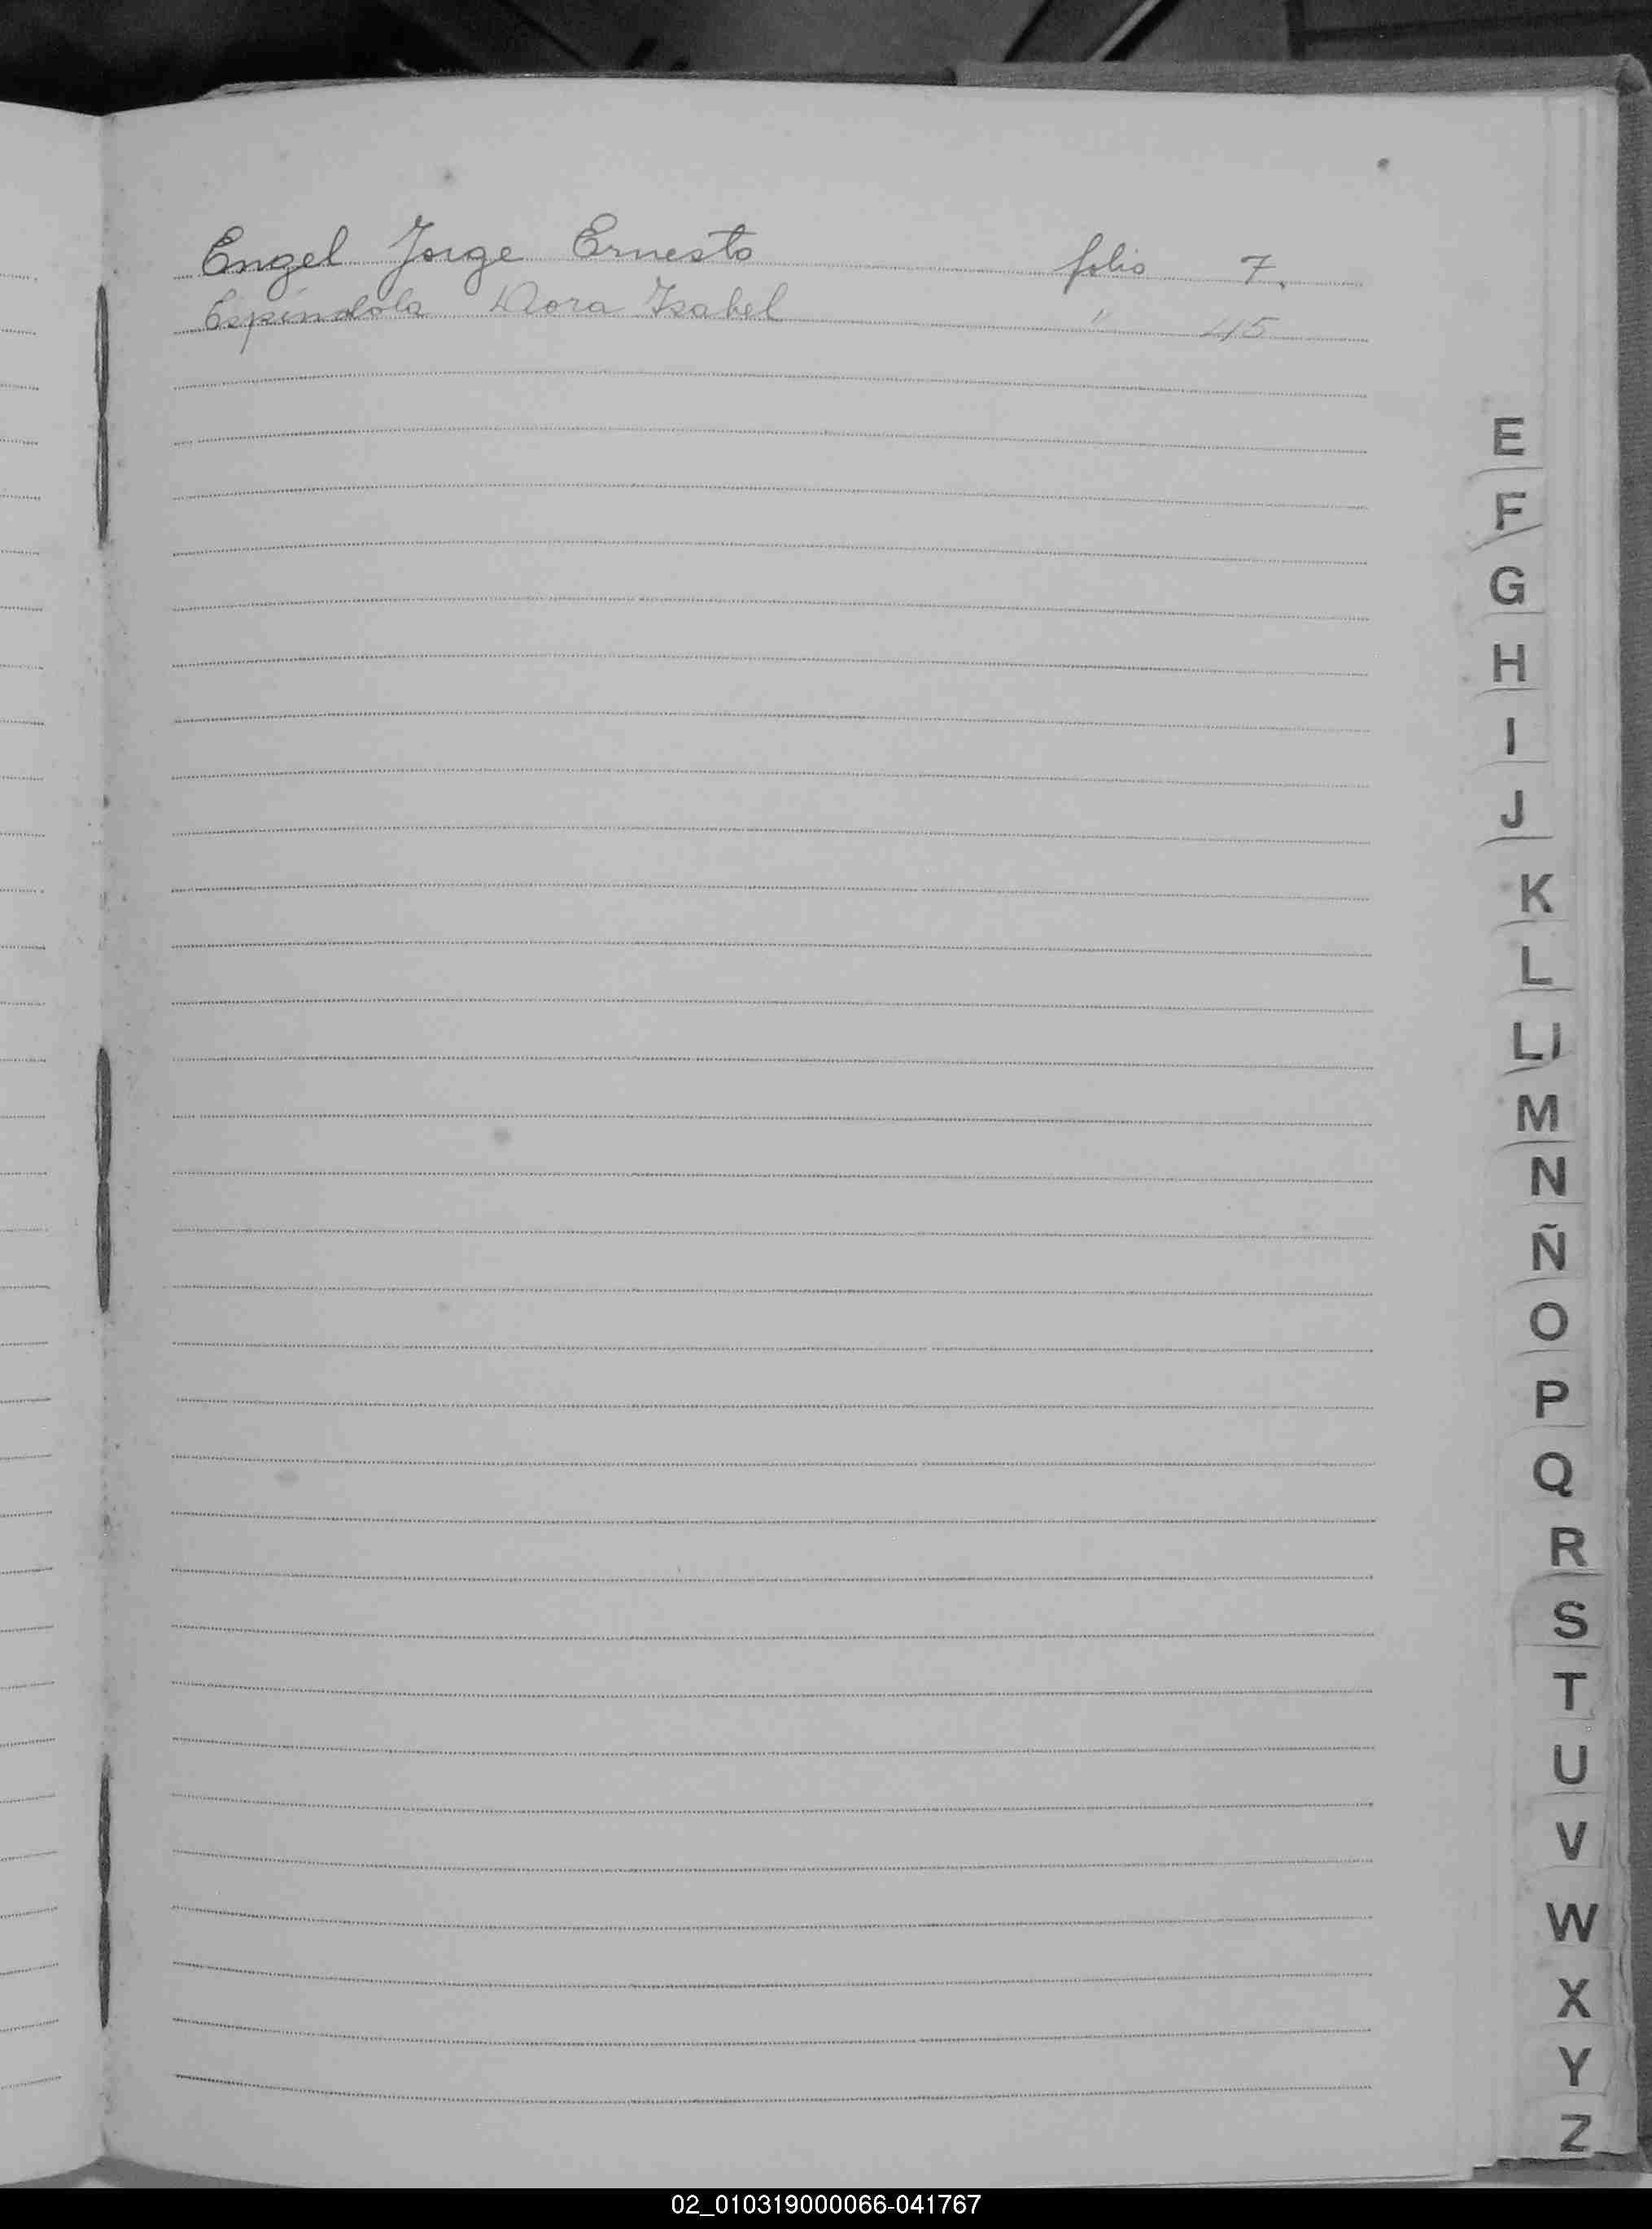 Engel Jorge Ernesto folio 7.
Espíndola Nora Isabel " 45
E
F
G
H
I
J
K
L
Ll
M
N
Ñ
O
P
Q
R
S
T
U
V
W
X
Y
Z
02_010319000066-041767